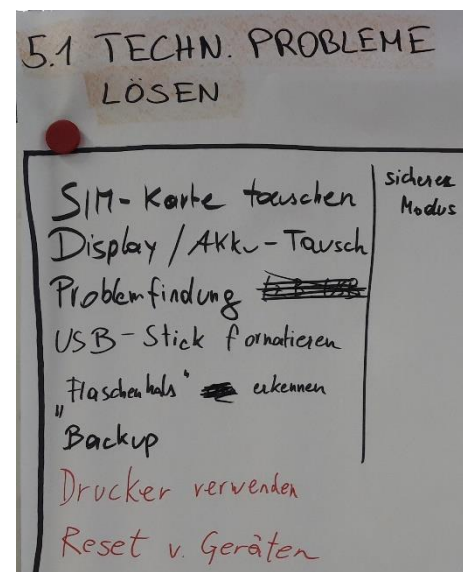 5.1 TECHN. PROBLEME
LÖSEN
SIM-Karte tauschen
Display / Akku-Tausch
Problemfindung
USB-Stick formatieren
„Flaschenhals“ erkennen
Backup
Drucker verwenden
Reset v. Geräten
sicherer
Modus